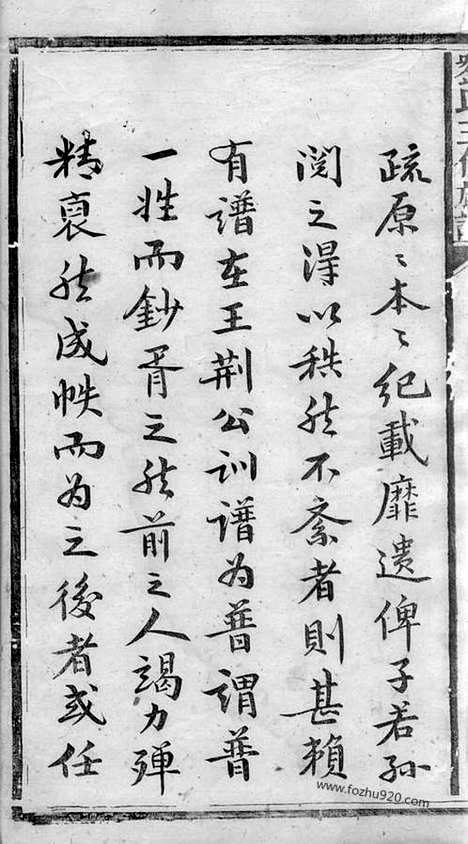 疏原〻本〻紀載靡遺俾子若孫
閱之淂以秩然不紊者則甚賴
有譜在王荆公訓譜为普謂普
一姓而鈔胥之然前之人竭力殫
精裒然成帙而为之後者或任
www.fozhu920.com